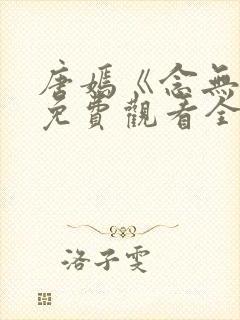 唐嫣《念無
免費觀看全
洛子雯